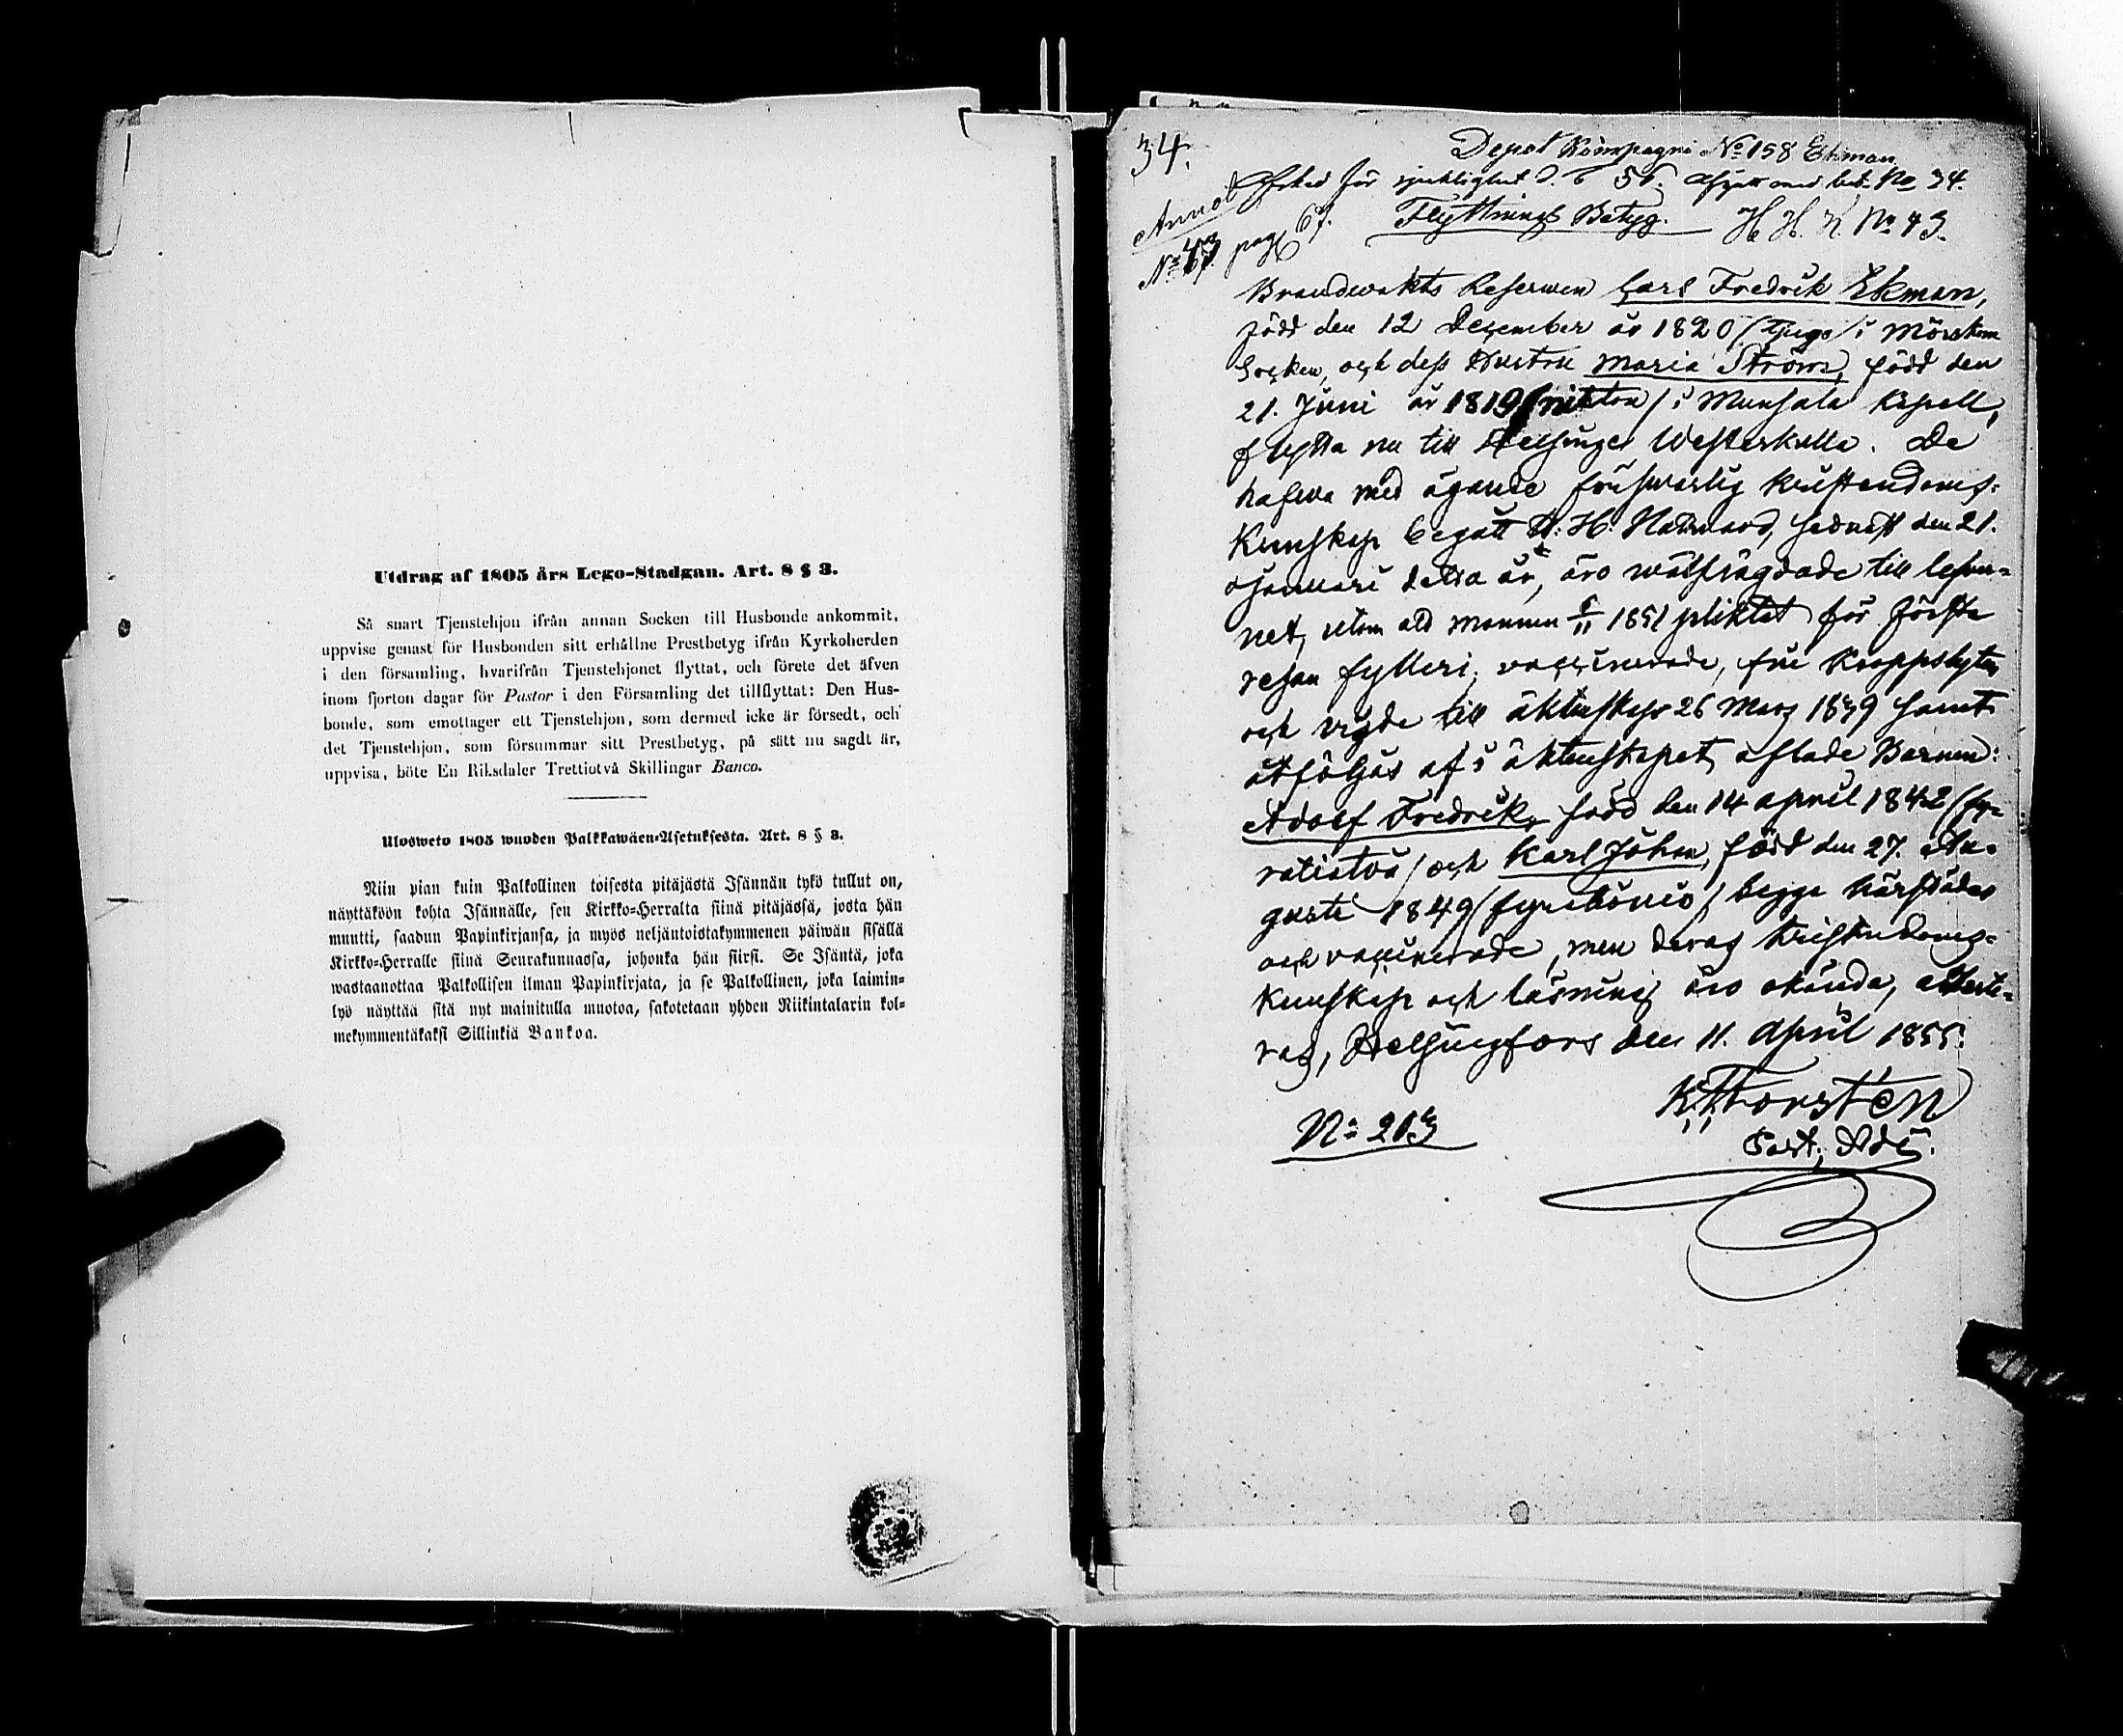 Utdrag af 1805 års Lego-Stadgan. Art. 8 § 3.
Så snart Tjenstehjon ifrån annan Socken till Husbonde ankommit,
uppvise genast för Husbonden sitt erhållne Prestbetyg ifrån Kyrkoherden
i den församling, hvarifrån Tjenstehjonet flyttat, och förete det äfven
inom fjorton dagar för Pastor i den Församling det tillflyttat: Den Hus-
bonde, som emottager ett Tjenstehjon, som dermed icke är försedt, och
det Tjenstehjon, som försummar sitt Prestbetyg, på sätt nu sagdt är,
uppvisa, böte En Riksdaler Trettiotvå Skillingar Banco.
Ulosweto 1805 wuoden Palkkawäen-Asetuksesta. Art. 8 § 3.
Niin pian kuin Palkollinen toisesta pitäjästä Isännän tykö tullut on,
näyttäköön kohta Isännälle, sen Kirkko-Herralta siinä pitäjässä, josta hän
muutti, saadun Papinkirjansa, ja myös neljäntoistakymmenen päiwän sisällä
Kirkko-Herralle siinä Seurakunnassa, johonka hän siirsi. Se Isäntä, joka
wastaanottaa Palkollisen ilman Papinkirjata, ja se Palkollinen, joka laimin-
lyö näyttää sitä nyt mainitulla muotoa, sakotetaan yhden Riikintalarin kol-
mekymmentäkaksi Sillinkiä Bankoa.
34.
Depot Kompagni No 158 Ekman
Afsked för sjuklighet d. 6 56. Afgått med bet. No 34.
Annot.
No 43 pag 67.
Flyttnings Betyg. H. H. K. No 43.
Brandwakts Reserwen Carl Fredrik Ekman,
född den 12 December år 1820 /tjugo/ i Mörskom
Socken, och dess Hustru Maria Ström, född den
21. Juni år 1819 /nitton/ i Munsala Kapell,
flytta nu till Helsinge Westerkulla. De
hafwa med ägande förswarlig kristendoms-
kunskap begått H: H: Nattward, sednast den 21.
Januari detta år, äro wälfrägdade till lefwer-
net, utom att mannen 6/11 1851 pliktat för första
resan fylleri, vaccinerade, frie kroppslyten
och vigde till äktenskap 26 Mars 1839 samt
åtföljas af i äktenskapet aflade Barnen:
Adolf Fredrik, född den 14 April 1842 /fy-
ratiotvå/ och Karl Johan, född den 27. Au-
gusti 1849 /fyrationio/ begge härstädes
och vaccinerade, men deras kristendoms-
kunskap och läsning äro okända, atteste-
ras, Helsingfors den 11. April 1855.
K. H. Forstén
Past. Adj.
No 213